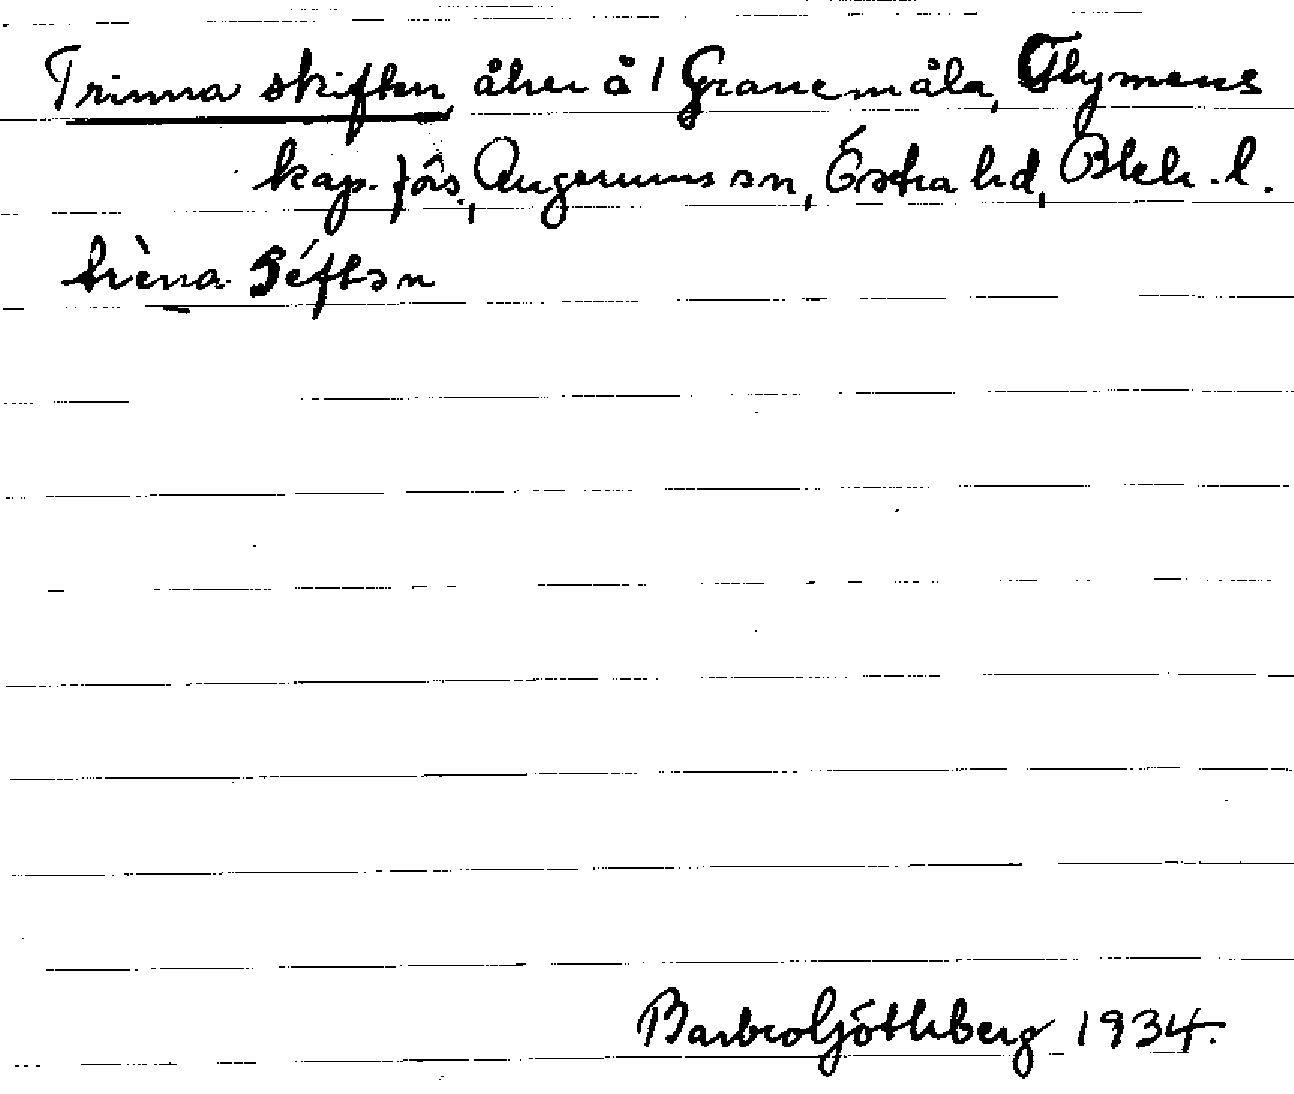 Trinna skiften, åker å 1 Granemåla, Flymens
kap. förs., Augerums sn, Östra hd, Blek. l.
trèna
Barbro Götlberg 1934.